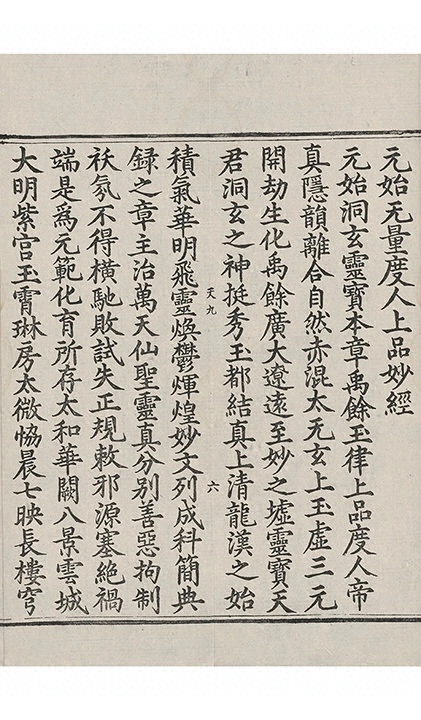 元始无量度人上品妙經
元始洞玄靈寶本章禹餘玉律上品度人帝
真隱韻離合自然赤混太无玄上玉虛三元
開劫生化禹餘廣大遼遠至妙之墟靈寶天
君洞玄之神挺秀玉都結真上清龍漢之始
天九
六
積氣華明飛靈煥鬱煇煌妙文列成科簡典
録之章主治萬天仙聖靈真分別善惡拘制
祅氛不得橫馳敗試失正規敕邪源塞絕禍
端是爲元範化育所存太和華闕八景雲城
大明紫宫玉霄琳房太微恊晨七映長樓穹